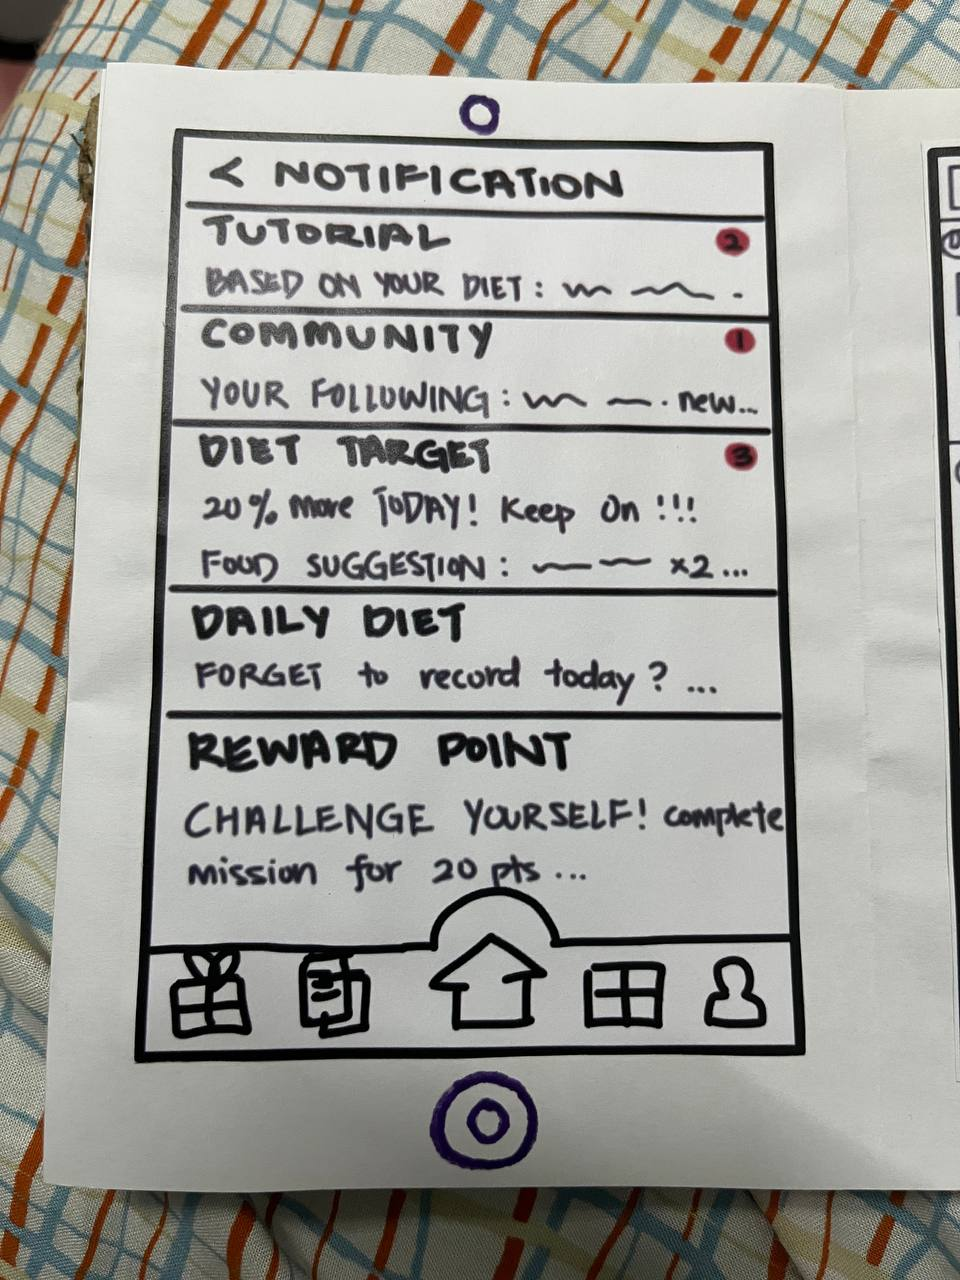 < NOTIFICATION
TUTORIAL 2
BASED ON YOUR DIET :
COMMUNITY 1
YOUR FOLLOWING : new...
DIET TARGET 3
20% More TODAY! Keep On !!!
FOOD SUGGESTION : x2 ...
DAILY DIET
FORGET to record today ? ...
REWARD POINT
CHALLENGE YOURSELF! complete
mission for 20 pts ...